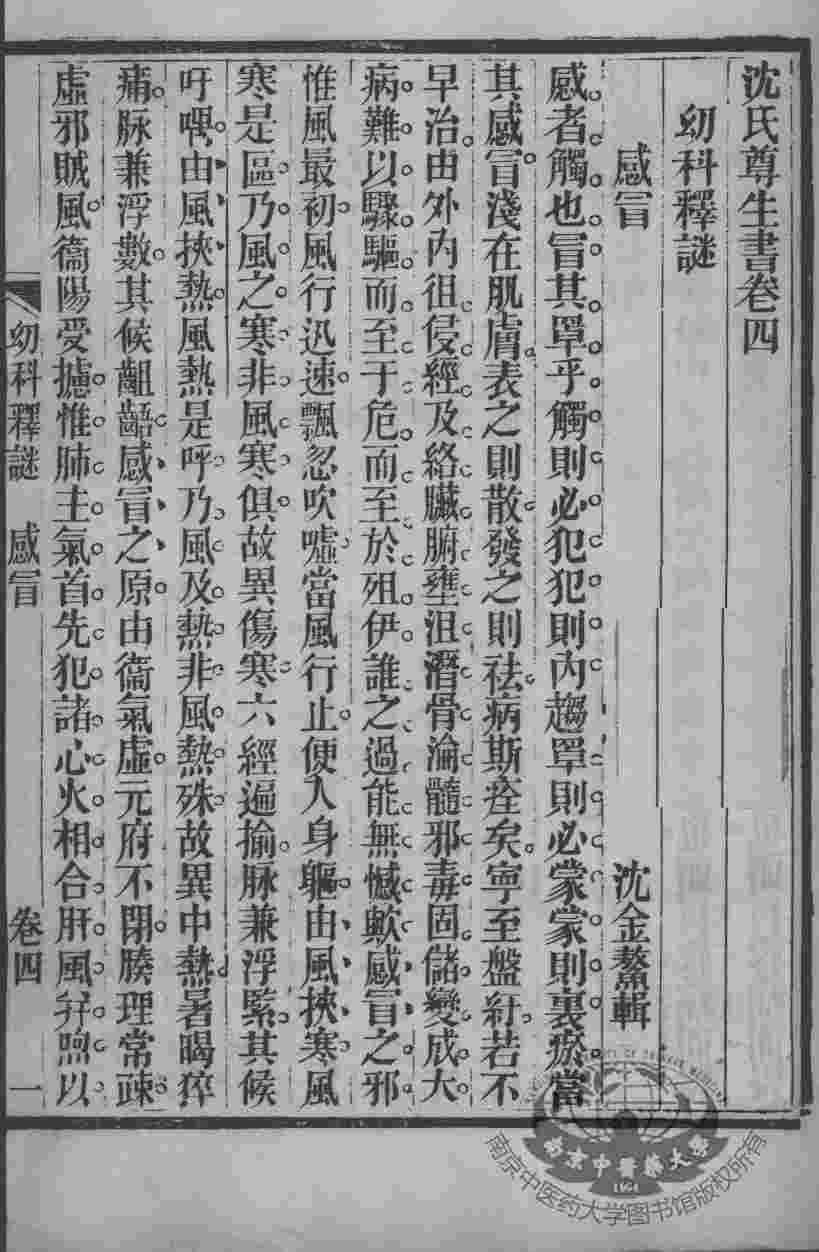 沈氏尊生書卷四
幼科釋謎
感冒 沈金鰲輯
感者觸也冒其罩乎觸則必犯犯則內趨罩則必蒙蒙則裏瘀當
其感冒淺在肌膚表之則散發之則祛病斯痊矣寧至盤紆若不
早治由外內徂侵經及絡臟腑壅沮潛骨淪髓邪毒固儲變成大
病難以驟驅而至于危而至於殂伊誰之過能無憾歟感冒之邪
惟風最初風行迅速飄忽吹噓當風行止便入身軀由風挾寒風
寒是區乃風之寒非風寒俱故異傷寒六經遍揄脉兼浮緊其候
吁喁由風挾熱風熱是呼乃風及熱非風熱殊故異中熱暑暍猝
痡脉兼浮數其候齟齬感冒之原由衞氣虛元府不閉腠理常疎
虛邪賊風衞陽受攄惟肺主氣首先犯諸心火相合肝風并煦以
幼科釋謎 感冒 卷四 一
南京中醫藥大學
1954
南京中医药大学图书馆版权所有